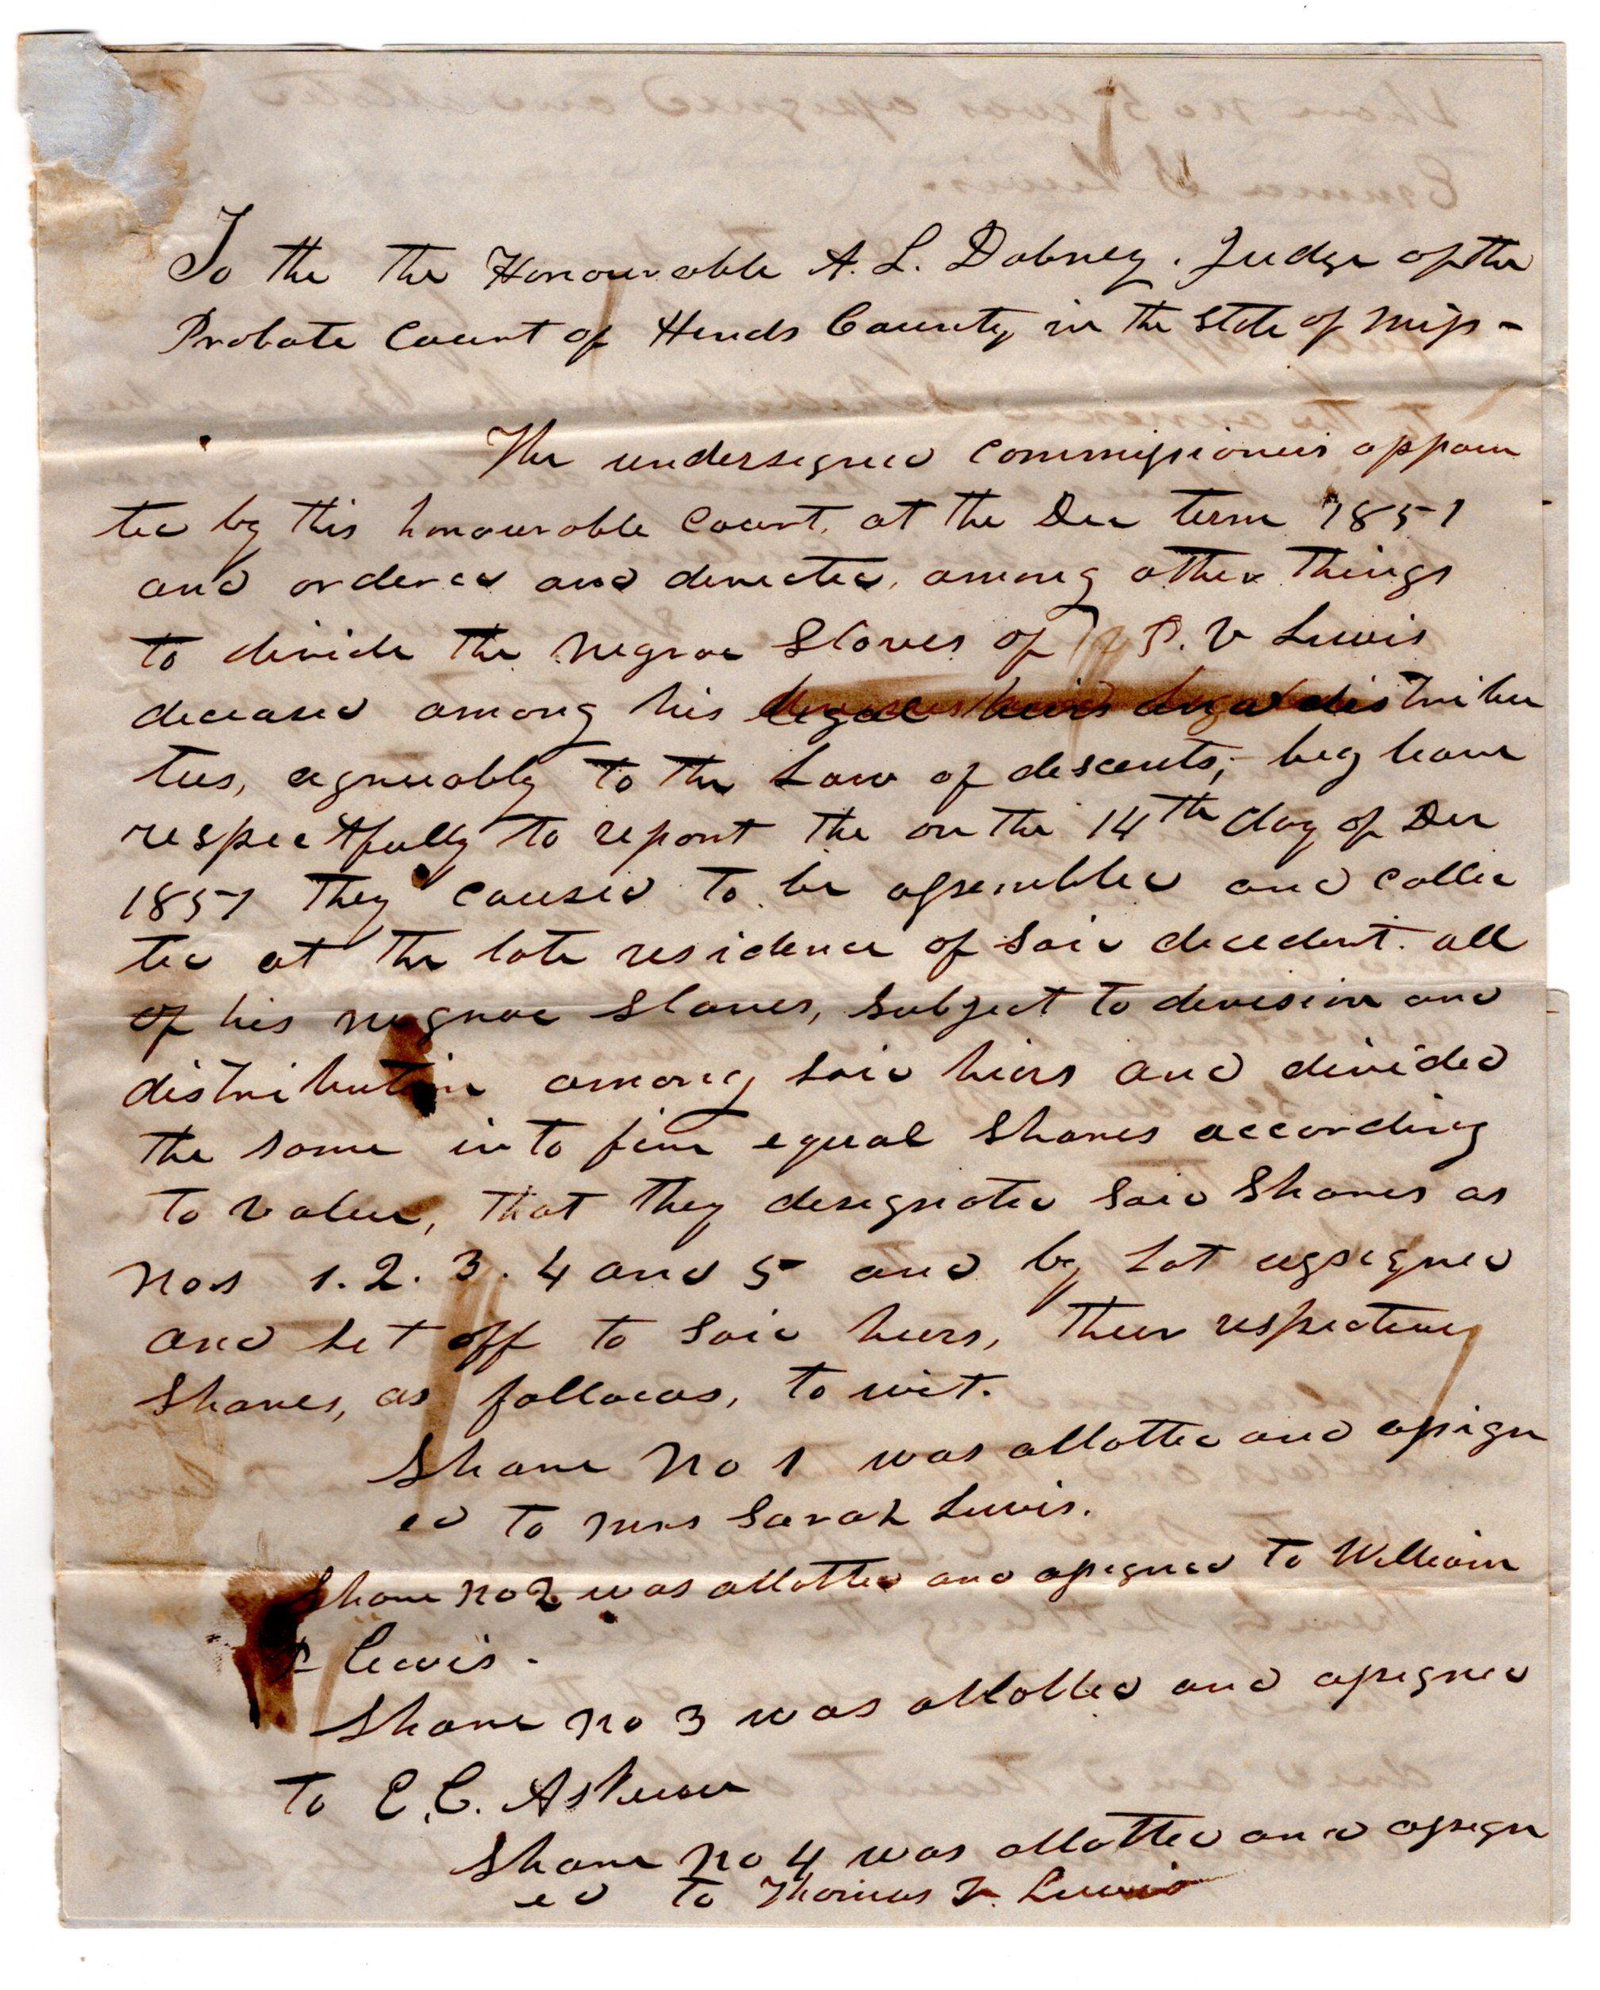 To the the Honourable A. L. Dabney. Judge of the
Probate Court of Hinds County in the State of Miss-
The undersigned commissioners appoin
ted by this honourable Court, at the Dec term 1851
and ordered and directed, among other things
to divide the negroe Slaves of P. V Lewis
deceased among his legal heirs distribu
tees, agreeably to the Law of descents; beg leave
respectfully to report the on the 14th day of Dec
1851 they caused to be assembled and collec
ted at the late residence of Said decedent. all
of his negroe Slaves, Subject to devision and
distribution among Said hiers and divided
the same into five equal Shares according
to value, that they designated Said Shares as
Nos 1. 2. 3. 4 and 5 and by Lot assigned
and set off to Said heirs, their respective
Shares, as follows, to wit.
Share No 1 was allotted and assign
ed to Mrs Sarah Lewis.
Share No 2 was allotted and assigned to William
Lewis.
Share No 3 was allotted and assigned
to E. C. Askew
Share No 4 was allotted and assign
ed to Thomas Lewis